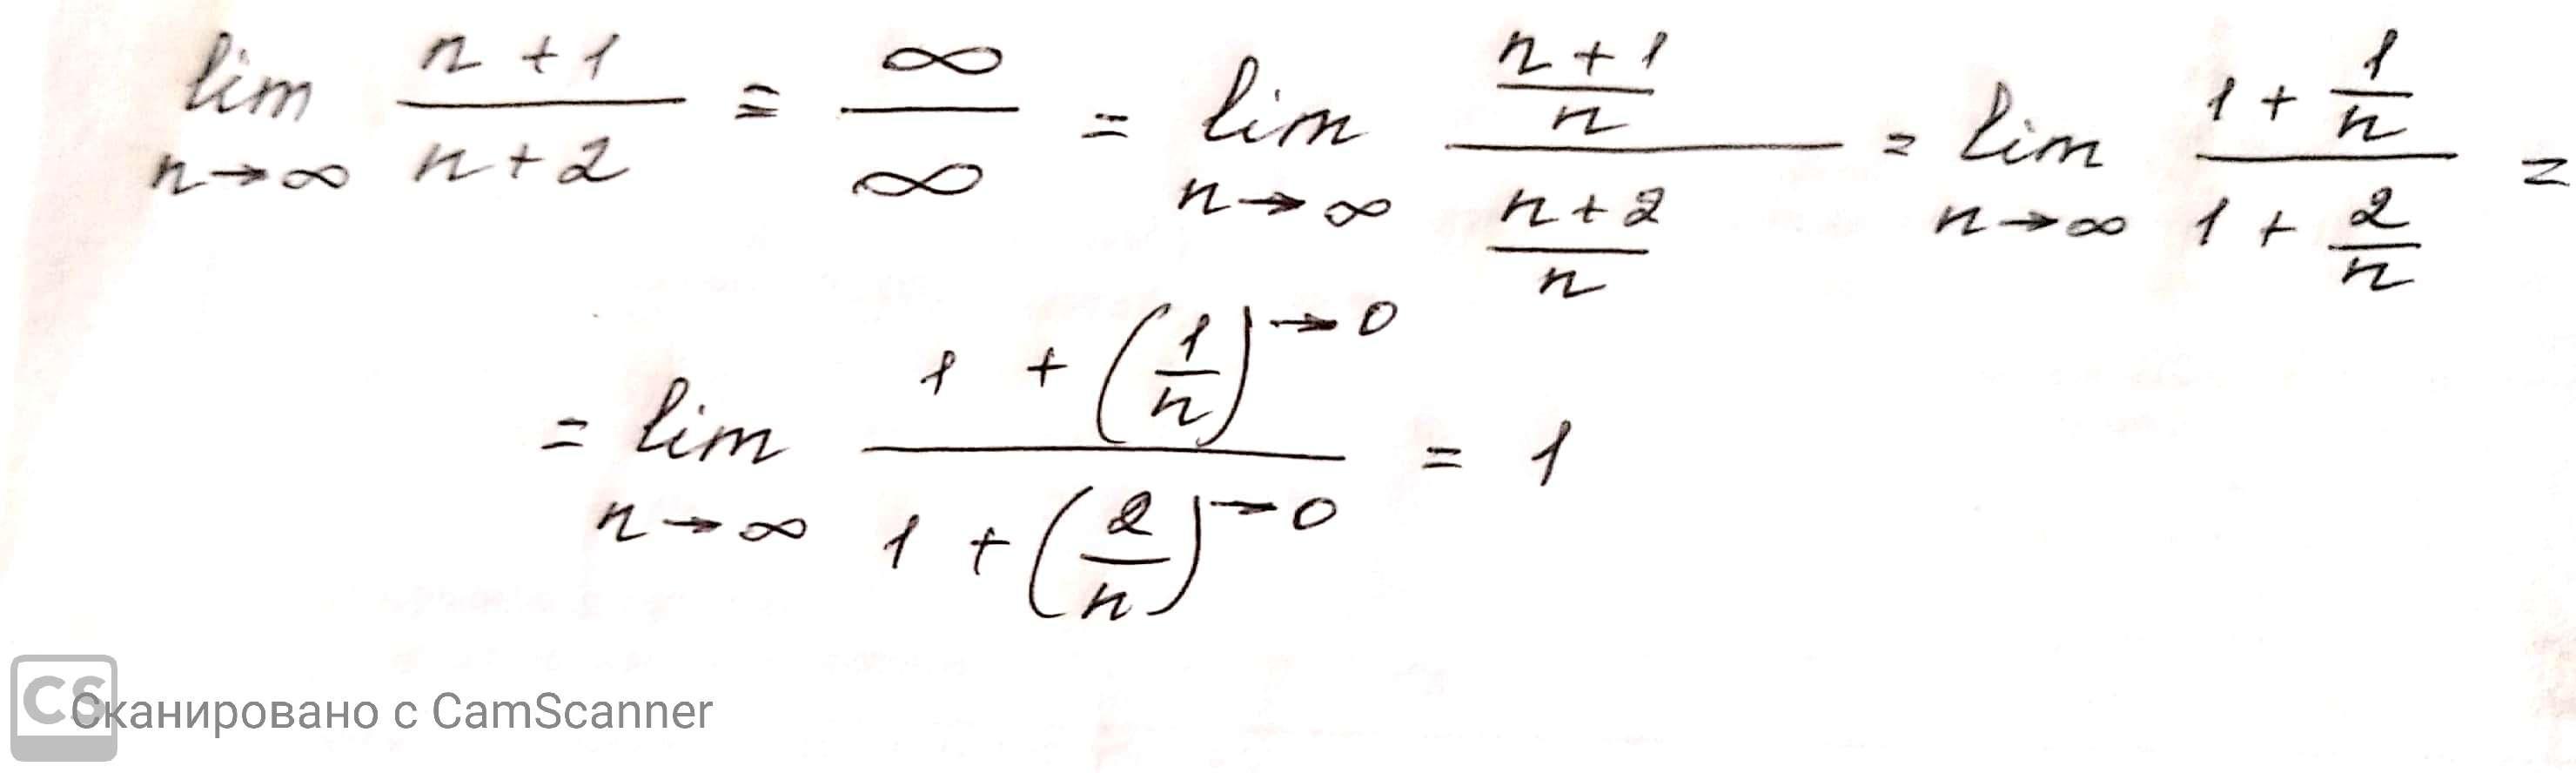 lim n→∞ (n+1)/(n+2) = ∞/∞ = lim n→∞ ((n+1)/n)/((n+2)/n) = lim n→∞ (1+1/n)/(1+2/n) =
= lim n→∞ (1+(1/n)→0)/(1+(2/n)→0) = 1
CS Сканировано с CamScanner